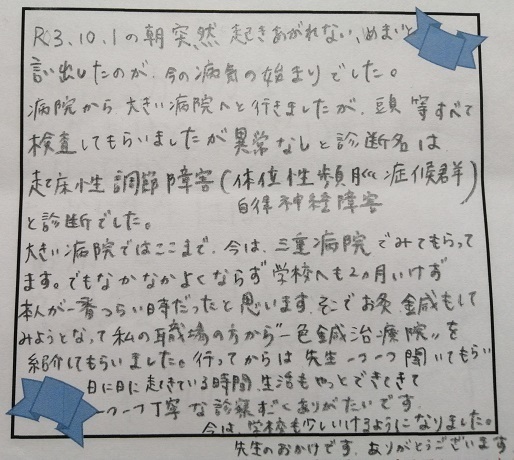 R3.10.1の朝突然起きあがれない、めまいと
言い出したのが、今の病気の始まりでした。
病院から大きい病院へと行きましたが、頭等すべて
検査してもらいましたが異常なしと診断名は
起床性調節障害(体位性頻脈症候群)
自律神経障害
と診断でした。
大きい病院ではここまで、今は、三重病院でみてもらって
ます。でもなかなかよくならず学校へも2ヵ月いけず
本人が一番つらい時だったと思います。そこでお灸、鍼もして
みようとなって私の職場の方から"一色鍼治療院"を
紹介してもらいました。行ってからは先生一つ一つ聞いてもらい
日に日に起きている時間、生活もやっとできてきて
一つ一つ丁寧な診察すごくありがたいです
今は、学校も少しいけるようになりました。
先生のおかげです。ありがとうございます